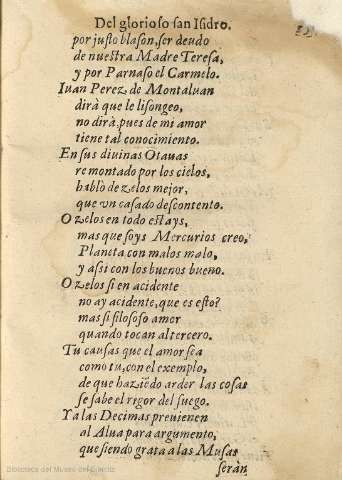 Del glorioso san Isidro.
por justo blason, ser deudo
de nuestra Madre Teresa,
y por Parnaso el Carmelo.
Iuan Perez de Montaluan
dirà que le lisongeo,
no dirà, pues de mi amor
tiene tal conocimiento.
En sus diuinas Otauas
remontado por los cielos,
hablò de zelos mejor,
que vn casado descontento.
O zelos en todo estays,
mas que soys Mercurios creo,
Planeta con malos malo,
y assi con los buenos bueno.
O zelos si en acidente
no ay acidente, que es esto?
mas si filosofo amor
quando tocan al tercero.
Tu causas que el amor sea
como tu, con el exemplo,
de que haziẽdo arder las cosas
se sabe el rigor del fuego.
Y a las Decimas preuienen
al Alua para argumento,
que siendo grata a las Musas
seràn
Biblioteca del Museo del Ejército